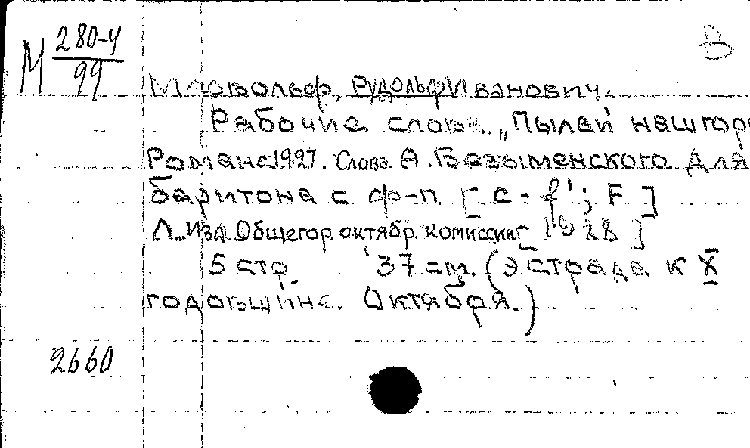 В
М 280-4
99
Мервольф, Рудольф Иванович.
Рабочие слова. „Пылай наш гор
Романс 1927. Слова А. Безыменского Для
баритона с ф-п. [c - f'; F]
Л. Изд. Общегор. октябр. комиссии [1928]
5 стр. 37 см. (Эстрада к X
годовщине Октября.)
2660